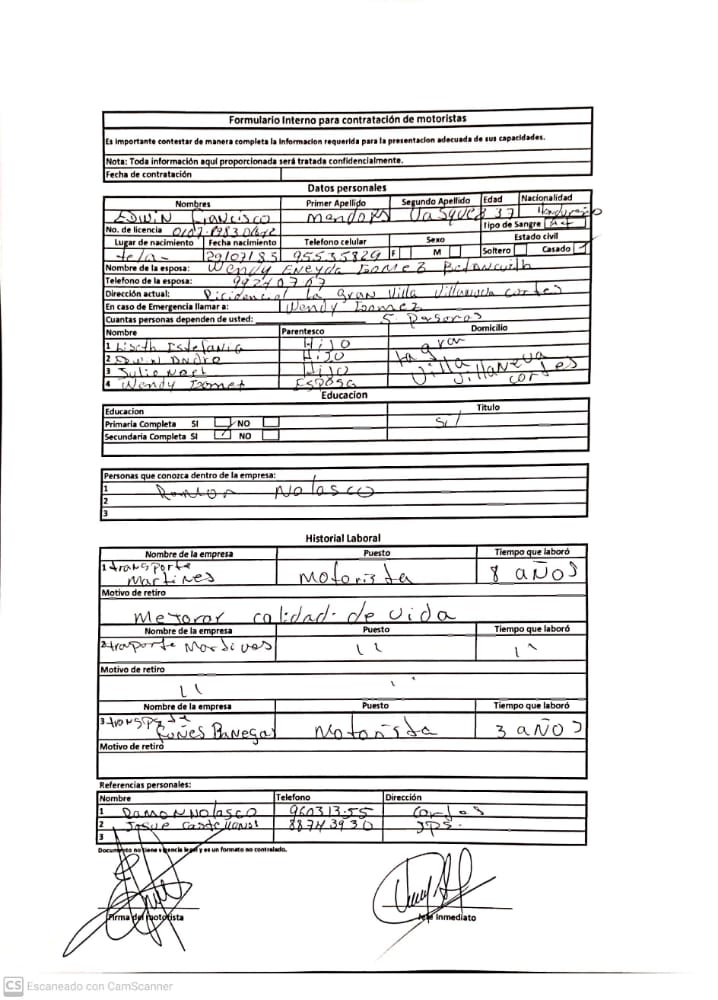 Formulario Interno para contratación de motoristas
Es importante contestar de manera completa la informacion requerida para la presentacion adecuada de sus capacidades.
Nota: Toda información aquí proporcionada será tratada confidencialmente.
Fecha de contratación
Datos personales
Nombres Primer Apellido Segundo Apellido Edad Nacionalidad
EDWIN Francisco Vasquez 37
No. de licencia Tipo de Sangre
Lugar de nacimiento Fecha nacimiento Telefono celular Sexo Estado civil
tela 29/07/85 95535829 F M Soltero Casado
Nombre de la esposa: Wendy Eneyda
Telefono de la esposa: 99240707
Dirección actual: la gran Villa cortes
En caso de Emergencia llamar a: Wendy
Cuantas personas dependen de usted: 5
Nombre Parentesco Domicilio
1 HIJO la gran
2 HIJO Villa
3 HIJO
4 Wendy ESPOSA cortes
Educacion
Educacion Titulo
Primaria Completa SI NO si
Secundaria Completa SI NO
Personas que conozca dentro de la empresa:
1 Nolasco
2
3
Historial Laboral
Nombre de la empresa Puesto Tiempo que laboró
1 transporte
Martines Motorista 8 AÑOS
Motivo de retiro
calidad de vida
Nombre de la empresa Puesto Tiempo que laboró
2 traporte
Motivo de retiro
Nombre de la empresa Puesto Tiempo que laboró
3
Motorista 3 AÑOS
Motivo de retiro
Referencias personales:
Nombre Telefono Dirección
1 RAMON Nolasco 960313-55
2 Josue 88743930
3
Documento no tiene vigencia legal y es un formato no controlado.
Firma del motorista Jefe inmediato
CS Escaneado con CamScanner